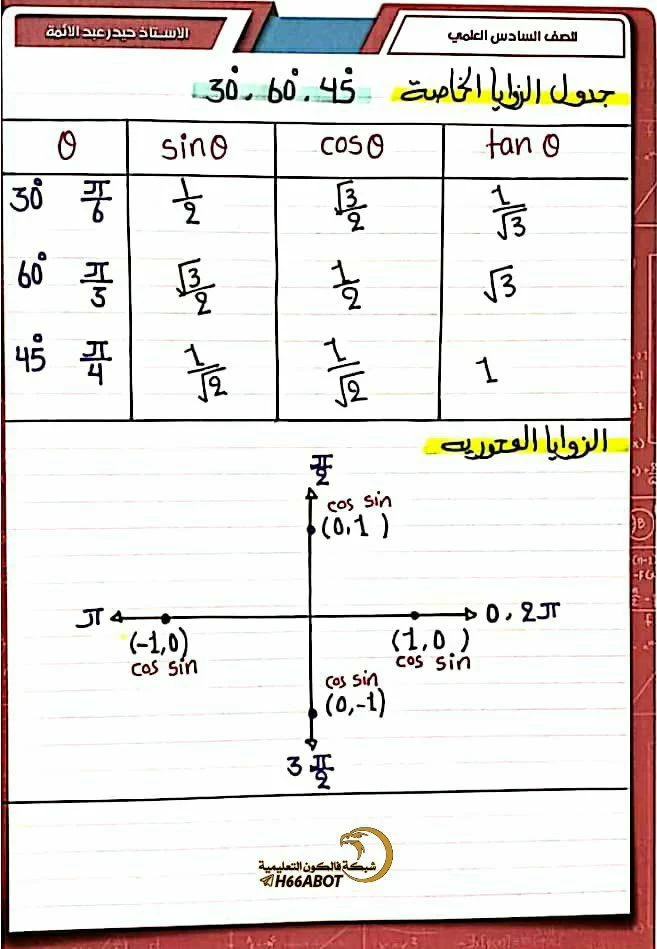 للصف السادس العلمي
الاستاذ حيدر عبد الائمة
جدول الزوايا الخاصة 30°، 60°، 45°
θ sinθ cosθ tanθ
30° π/6 1/2 √3/2 1/√3
60° π/3 √3/2 1/2 √3
45° π/4 1/√2 1/√2 1
الزوايا المحورية
π/2
cos sin
(0,1)
π
0، 2π
(-1,0)
cos sin
(1,0)
cos sin
cos sin
(0,-1)
3π/2
شبكة فالكون التعليمية
H66ABOT